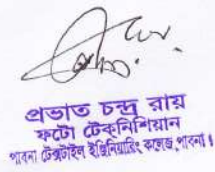 প্রভাত চন্দ্র রায়
ফটো টেকনিশিয়ান
পাবনা টেক্সটাইল ইঞ্জিনিয়ারিং কলেজ, পাবনা।